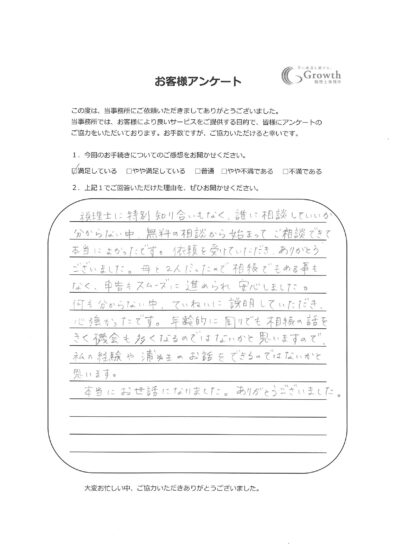 お客様アンケート
Growth
税理士事務所
この度は、当事務所にご依頼いただきましてありがとうございました。
当事務所では、お客様により良いサービスをご提供する目的で、皆様にアンケートの
ご協力をいただいております。お手数ですが、ご協力いただけると幸いです。
1．今回のお手続きについてのご感想をお聞かせください。
☑満足している　□やや満足している　□普通　□やや不満である　□不満である
2．上記1でご回答いただけた理由を、ぜひお聞かせください。
税理士に特別知り合いもなく、誰に相談していいか
分からない中、無料の相談から始まってご相談できて
本当によかったです。依頼を受けていただき、ありがとう
ございました。母と2人だったので相続でもめる事も
なく、申告もスムーズに進められ安心しました。
何も分からない中、ていねいに説明していただき、
心強かったです。年齢的に周りでも相続の話を
きく機会も多くなるのではないかと思いますので、
私の経験や浦先生のお話をできるのではないかと
思います。
本当にお世話になりました。ありがとうございました。
大変お忙しい中、ご協力いただきありがとうございました。